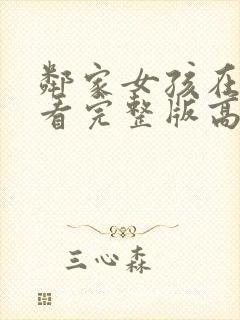 鄰家女孩在
看完整版高
三心森